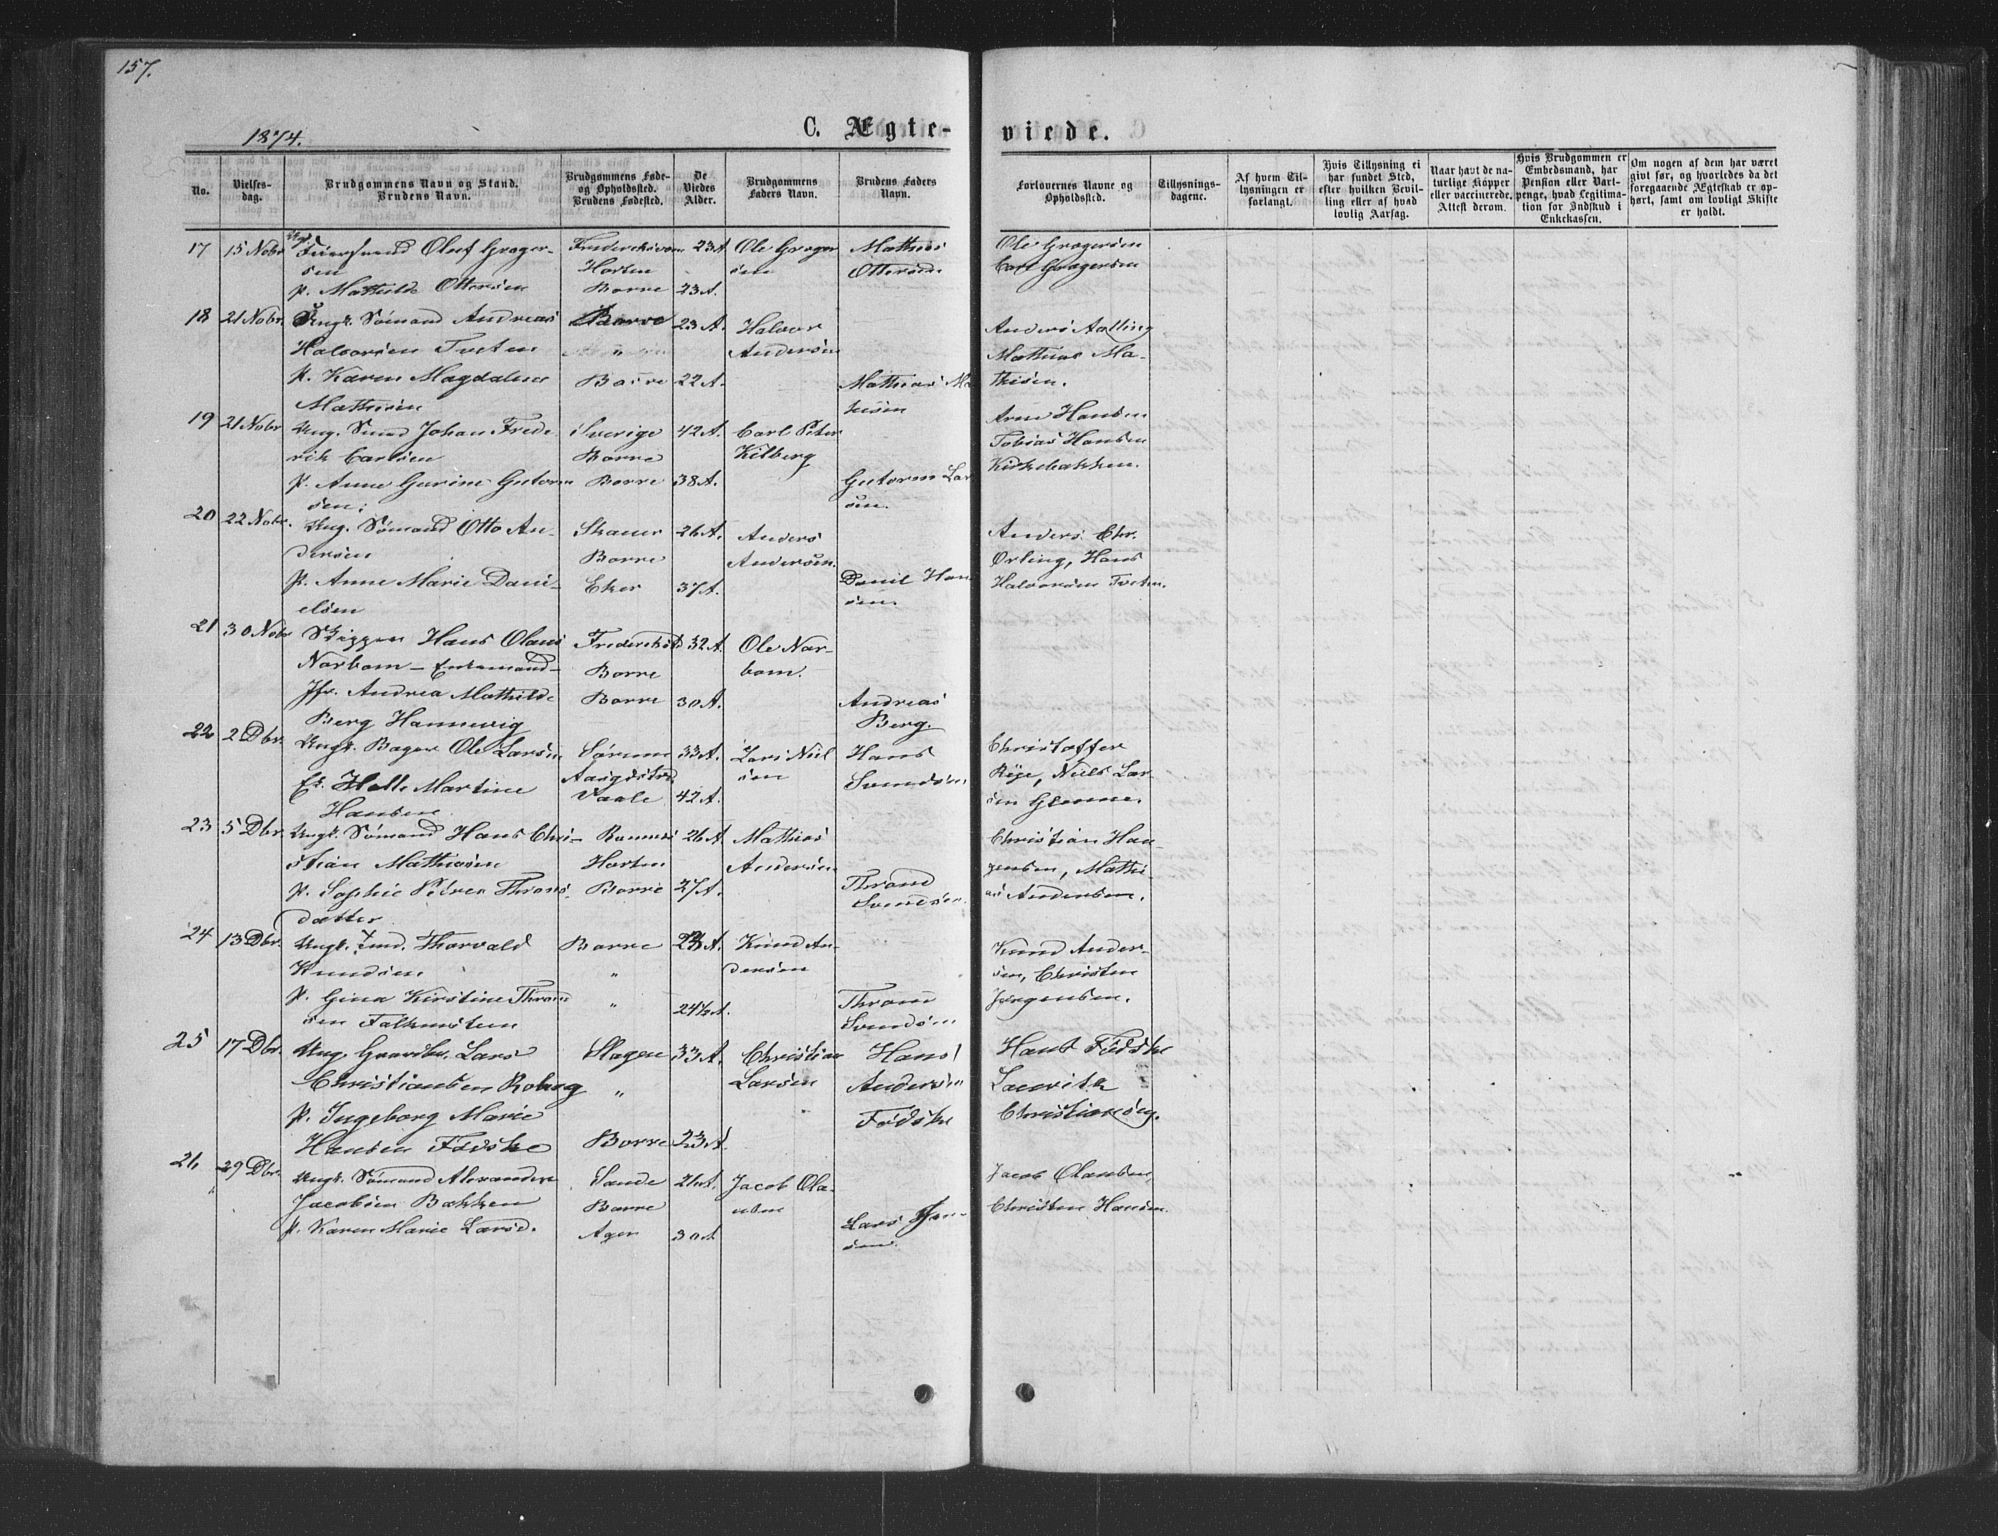 157.
1874.
C. Ægte-
viede.
No.
Vielses-
dag.
Brudgommens Navn og Stand.
Brudens Navn.
Brudgommens Føde-
og Opholdssted.
Brudens Fødested.
De
Viedes
Alder.
Brudgommens
Faders Navn.
Brudens Faders
Navn.
Forlovernes Navne og
Opholdssted.
Tillysnings-
dagene.
Af hvem Til-
lysningen er
forlangt.
Hvis Tillysning ei
har fundet Sted,
efter hvilken Bevil-
ling eller af hvad
lovlig Aarsag.
Naar havt de na-
turlige Kopper
eller vaccinerede.
Attest derom.
Hvis Brudgommen er
Embedsmand, har
Pension eller Vart-
penge, hvad Legitima-
tion for Indskud i
Enkekassen.
Om nogen af dem har været
givt før, og hvorledes da det
foregaaende Ægteskab er op-
hørt, samt om lovligt Skifte
er holdt.
17 15 Nobr Olaf Groger-
sen
p. Mathilde Ottersen
Horten
Borre
23 A
23 A.
Ole Groger
sen
Mathias
Ottersen
Ole Grogersen
Carl Grogersen
18 21 Nobr. Ungk. Sømand Andreas
Halvorsen Tveten
p. Karen Magdalene
Mathisen
Borre
"
Borre
23 A.
22 A.
Halvor
Andersen
Mathias Ma
thisen
Anders Aalling
Mathias Ma-
thisen.
19 21 Nobr Ung. Smed Johan Frede
rik Carlsen
p. Anne Gurine Gutorm
sen;
Sverige
Borre
Borre
42 A.
38 A.
Carl Peter
Kilberg
Gutorm Lar
sen.
Arne Hansen
Tobias Hansen
Kirkebakken.
20 22 Nobr. Ung. Sømand Otto An-
dersen
p. Anne Marie Dani-
elsen
Skauer
Borre
Eker
26 A.
37 A.
Anders
Andersen.
Daniel Han
sen.
Anders Chr.
Ørling, Hans
Halvorsen Tveten.
21 30 Nobr Skipper Hans Olaus
Narbom - Enkemand -
Jfr. Andrea Mathilde
Berg Hannevig
Frederikstad
Borre
Borre
32 A.
30 A.
Ole Nar-
bom.
Andreas
Berg.
22 2 Dbr. Ungk. Bager Ole Larsen
E. Helle Martine
Hansen
Sørum
Aasgdstrd
Vaale
33 A.
42 A.
Lars Niel
sen
Hans
Svendsen
Christoffer
Røge, Niels Lar
sen Glenne.
23 5 Dbr. Ungk. Sømand Hans Chri-
stian Mathisen
p. Sophie Petrea Throns
datter
Ramnes
Horten
Borre
26 A.
27 A.
Mathias
Andersen
Thrond
Svendsen.
Christian Han-
gensen, Mathi-
as Andersen.
24 13 Dbr. Ungk. Smd. Thorvald
Knudsen
p. Gina Kirstine Thron
sen Falkensteen
Borre
"
"
23 A.
24½ A.
Knud An-
dersen
Thron
Svendsen
Knud Ander-
sen, Christen
Jørgensen.
25 17 Dbr. Ung. Grdbr. Lars
Christiansen Roberg
p. Ingeborg Marie
Hansen Fødske
Slagen
"
Borre
33 A.
23 A.
Christian
Larsen
Hans
Andersen
Fødske
Hans Fødske
Lauritz
Christiansen.
26 29 Dbr. Ungk. Sømand Alexander
Jacobsen Bakken
p. Karen Marie Larsd.
Sande
Borre
Ager
26 A.
30 A
Jacob Ola-
usen
Lars Jen-
sen.
Jacob Olausen,
Christen Hansen